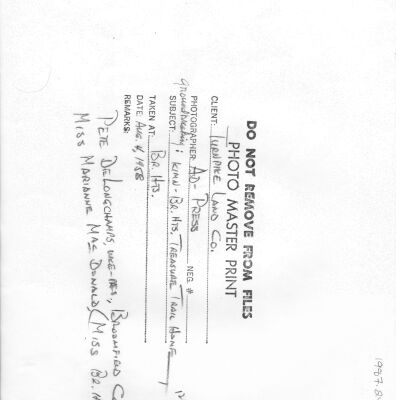 DO NOT REMOVE FROM FILES
PHOTO MASTER PRINT
CLIENT: TURNPIKE LAND CO.
PHOTOGRAPHER: AD-PRESS NEG. #
Groundbreaking;
SUBJECT: KIMN-BR. HTS. TREASURE TRAIL HOME
TAKEN AT: BR. HTS.
DATE: AUG. 4, 1958
REMARKS:
PETE DELONGCHAMPS, VICE-PRES, BROOMFIELD CO
MISS MARIANNE MAC DONALD (MISS BR. H
1987.8